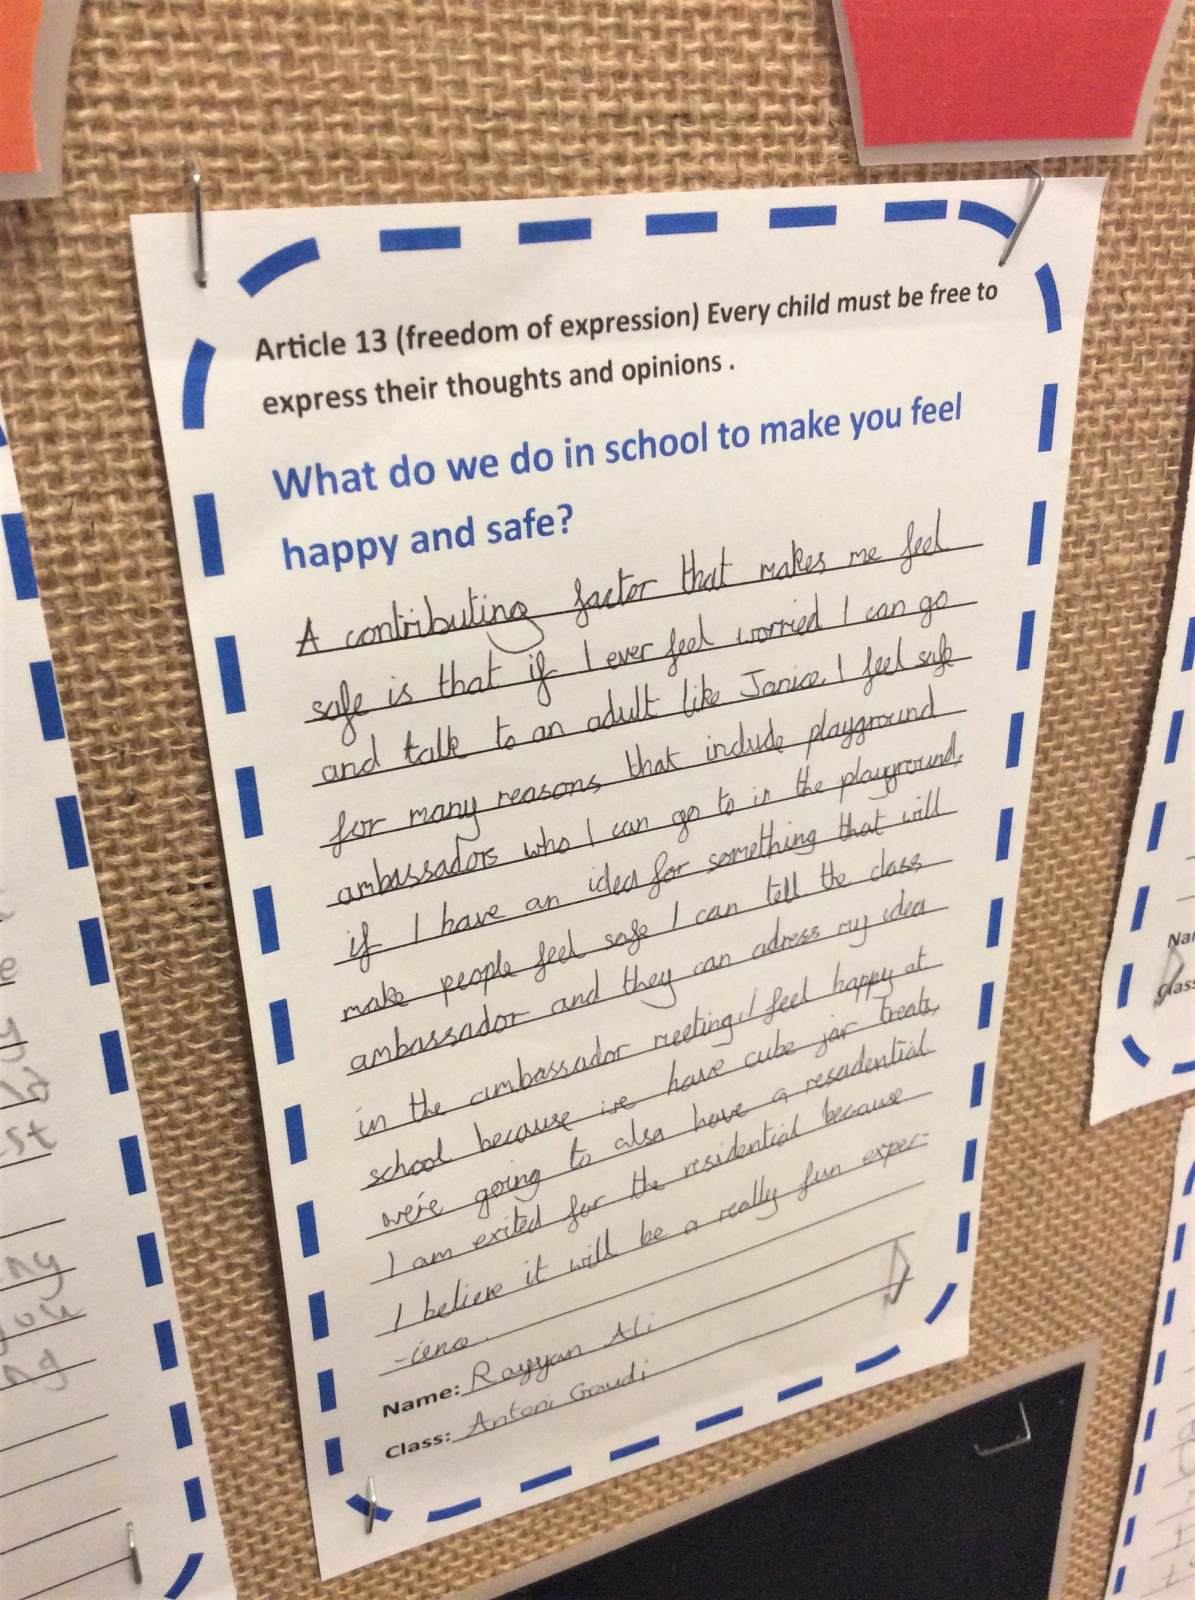 Article 13 (freedom of expression) Every child must be free to
express their thoughts and opinions .
What do we do in school to make you feel
happy and safe?
A contributing factor that makes me feel
safe is that if I ever feel worried I can go
and talk to an adult like Janice. I feel safe
for many reasons that include playground
ambassadors who I can go to in the playground,
if I have an idea for something that will
make people feel safe I can tell the class
ambassador and they can adress my idea
in the ambassador meeting. I feel happy at
school because we have cube jar treats,
we're going to also have a resadential
I am exited for the residential because
I believe it will be a really fun exper-
-ience.
Name: Rayyan Ali
Class: Antoni Gaudi